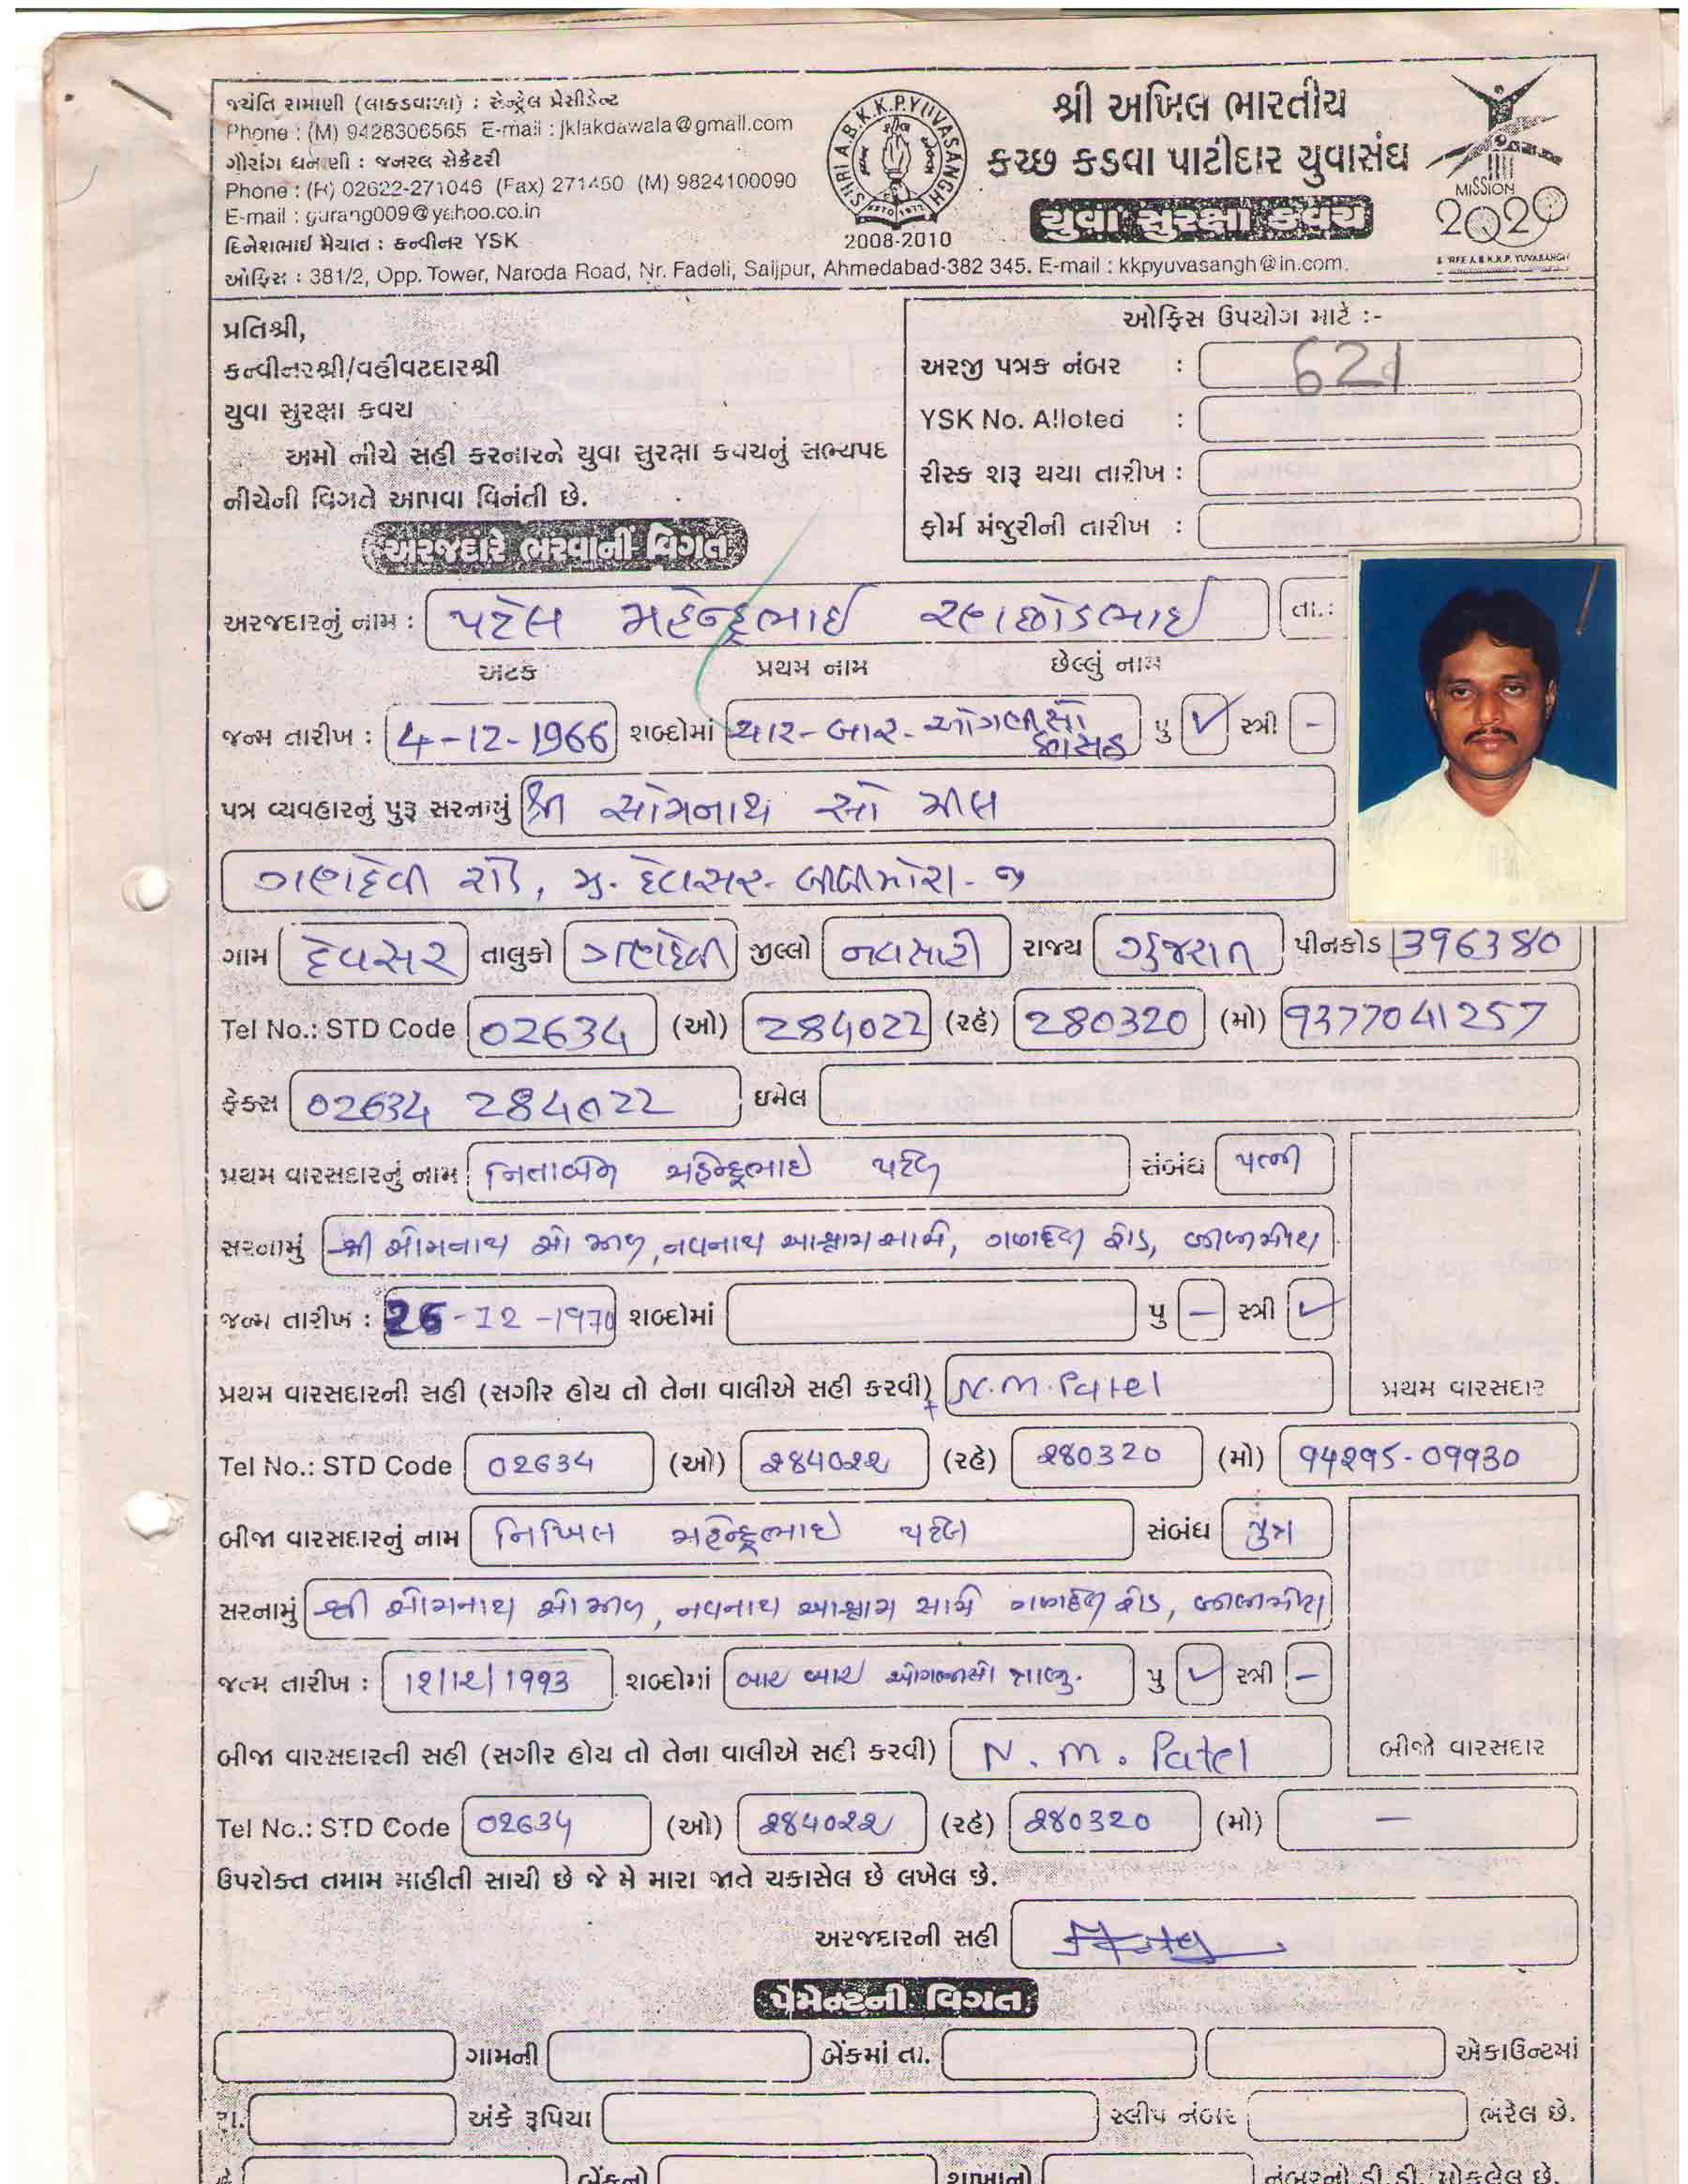 જયંતિ રામાણી (લાકડાવાળા) : સેન્ટ્રલ પ્રેસીડેન્ટ
Phone : (M) 9428306565 E-mail : jklakdawala@gmail.com
ગૌરાંગ ધનાણી : જનરલ સેક્રેટરી
Phone : (R) 02622-271046 (Fax) 271450 (M) 9824100090
E-mail : gurang009@yahoo.co.in
દિનેશભાઈ મૈયાત : કન્વીનર YSK
ઓફિસ : 381/2, Opp. Tower, Naroda Road, Nr. Fadeli, Saijpur, Ahmedabad-382 345. E-mail : kkpyuvasangh@in.com.
SHRI A.B.K.K.P. YUVASANGH
2008-2010
શ્રી અખિલ ભારતીય
કચ્છ કડવા પાટીદાર યુવાસંઘ
યુવા સુરક્ષા કવચ
MISSION
2020
પ્રતિશ્રી,
કન્વીનરશ્રી/વહીવટદારશ્રી
યુવા સુરક્ષા કવચ
અમો નીચે સહી કરનારને યુવા સુરક્ષા કવચનું સભ્યપદ
નીચેની વિગતે આપવા વિનંતી છે.
ઓફિસ ઉપયોગ માટે :-
અરજી પત્રક નંબર : 621
YSK No. Alloted :
રીસ્ક શરૂ થયા તારીખ :
ફોર્મ મંજુરીની તારીખ :
અરજદારે ભરવાની વિગત
અરજદારનું નામ : પટેલ મહેન્દ્રભાઈ રણછોડભાઈ તા.:
અટક પ્રથમ નામ છેલ્લું નામ
જન્મ તારીખ : 4-12-1966 શબ્દોમાં ચાર-બાર-ઓગણીસો છાસઠ પુ ✓ સ્ત્રી -
પત્ર વ્યવહારનું પુરૂ સરનામું શ્રી સોમનાથ સો મીલ
ગણદેવી રોડ, મુ. દેવસર- બીલીમોરા-
ગામ દેવસર તાલુકો ગણદેવી જીલ્લો નવસારી રાજ્ય ગુજરાત પીનકોડ 396380
Tel No.: STD Code 02634 (ઓ) 284022 (રહે) 280320 (મો) 9377041257
ફેક્સ 02634 284022 ઇમેલ
પ્રથમ વારસદારનું નામ નિતાબેન મહેન્દ્રભાઈ પટેલ સંબંધ પત્ની
સરનામું શ્રી સોમનાથ સો મીલ, નવનાથ આશ્રામ સામે, ગણદેવી રોડ, બીલીમોરા
જન્મ તારીખ : 26-12-1970 શબ્દોમાં પુ - સ્ત્રી ✓
પ્રથમ વારસદારની સહી (સગીર હોય તો તેના વાલીએ સહી કરવી) N.M.Patel
પ્રથમ વારસદાર
Tel No.: STD Code 02634 (ઓ) ૨8૪0૨૨ (રહે) ૨80320 (મો) 9૪૨95-09930
બીજા વારસદારનું નામ નિખિલ મહેન્દ્રભાઈ પટેલ સંબંધ પુત્ર
સરનામું શ્રી સોમનાથ સો મીલ, નવનાથ આશ્રામ સામે ગણદેવી રોડ, બીલીમોરા
જન્મ તારીખ : 1૨/1૨/1993 શબ્દોમાં બાર બાર ઓગણીસો ત્રાણુ. પુ ✓ સ્ત્રી -
બીજા વારસદારની સહી (સગીર હોય તો તેના વાલીએ સહી કરવી) N. M. Patel
બીજો વારસદાર
Tel No.: STD Code 02634 (ઓ) ૨8૪0૨૨ (રહે) ૨80320 (મો) -
ઉપરોક્ત તમામ માહીતી સાચી છે જે મે મારા જાતે ચકાસેલ છે લખેલ છે.
અરજદારની સહી
પેમેન્ટની વિગત
ગામની બેંકમાં તા. એકાઉન્ટમાં
રૂા. અંકે રૂપિયા સ્લીપ નંબર ભરેલ છે.
બેંકનો શાખાનો નંબરનો ડી.ડી. મોકલેલ છે.